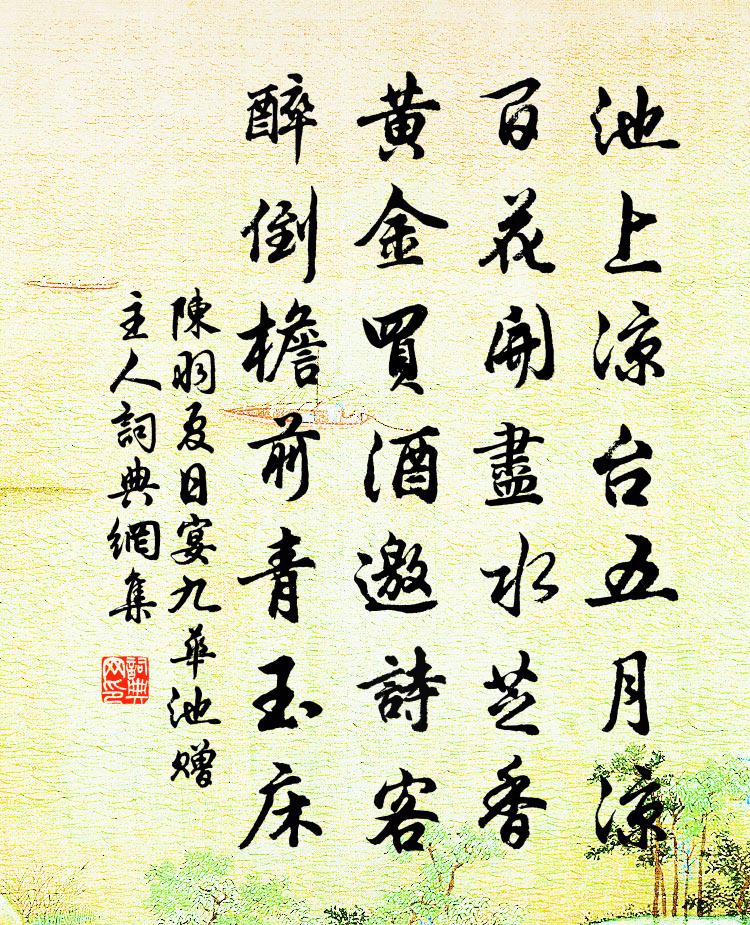 池上凉台五月凉
百花開盡水芝香
黄金買酒邀詩客
醉倒檐前青玉床
陳羽夏日宴九華池赠
主人詞典網集
詞典网印